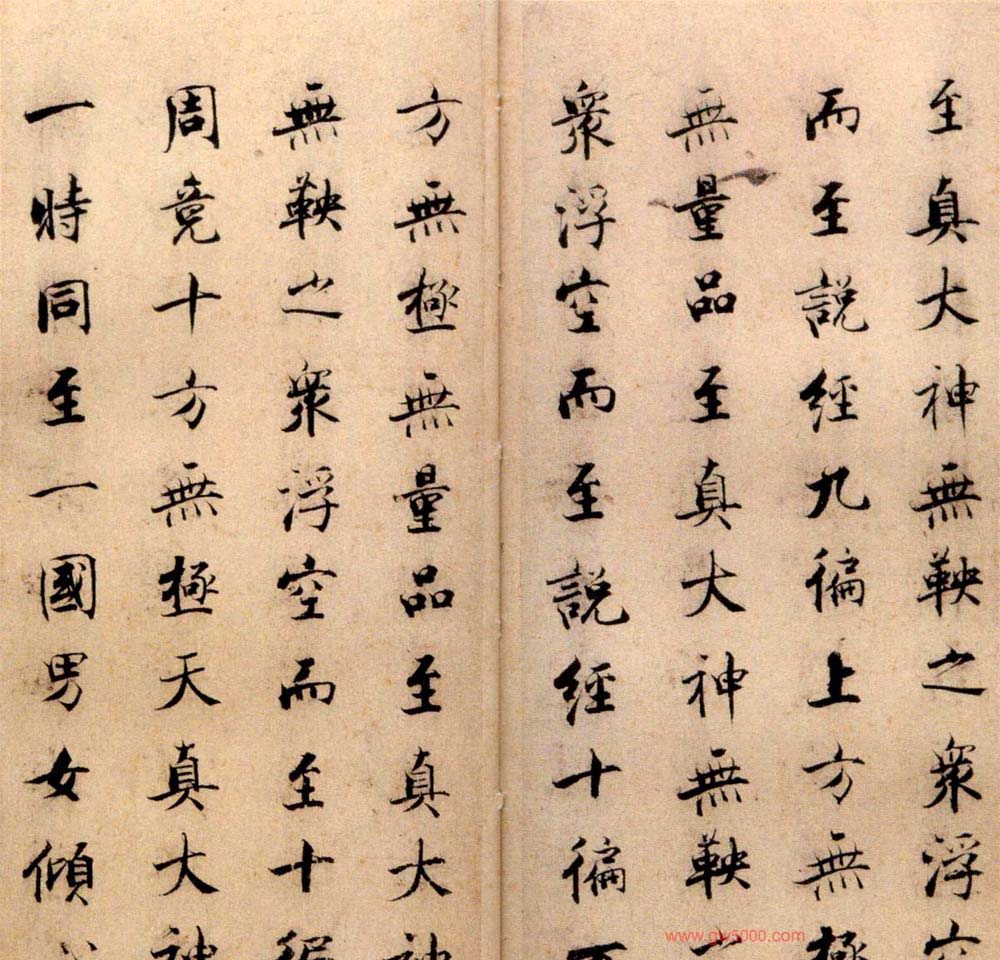 至真大神無鞅之衆浮空
而至說經九徧上方無極
無量品至真大神無鞅之
衆浮空而至說經十徧下
方無極無量品至真大神
無鞅之衆浮空而至十徧
周竟十方無極天真大神
一時同至一國男女傾心
www.gw5000.com